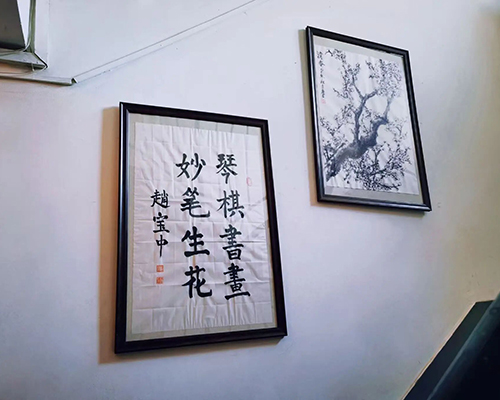 琴棋書畫
妙笔生花
趙宝中